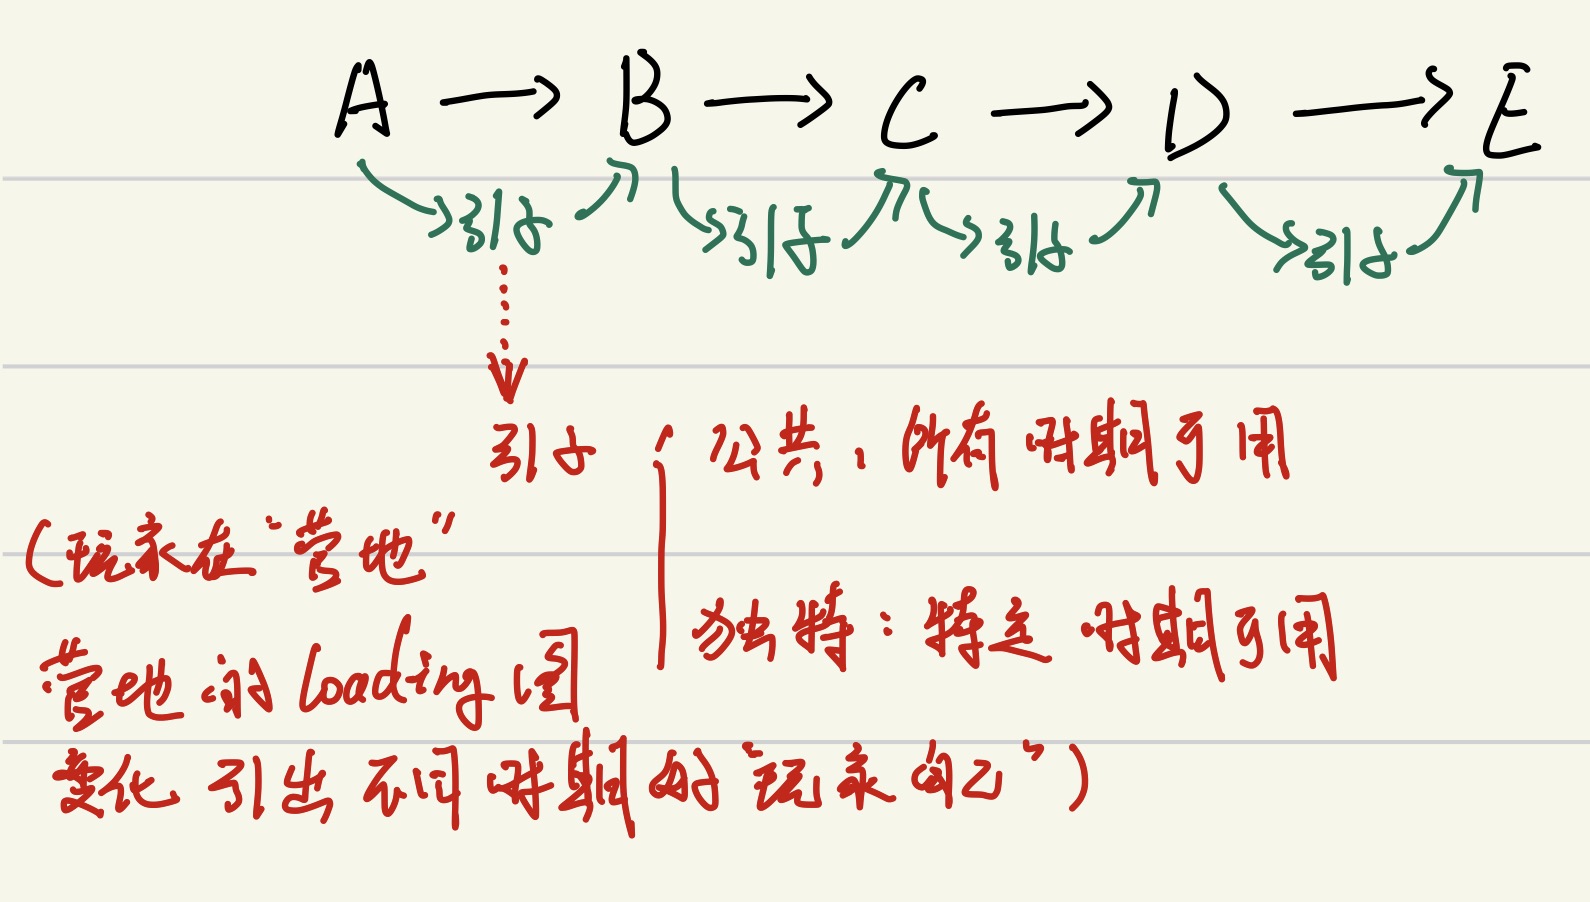 A → B → C → D → E
引子 引子 引子 引子
引子 { 公共: 所有时期可用
独特: 特定时期可用
(玩家在“营地”
营地的loading图
变化引出不同时期的“玩家自己”)